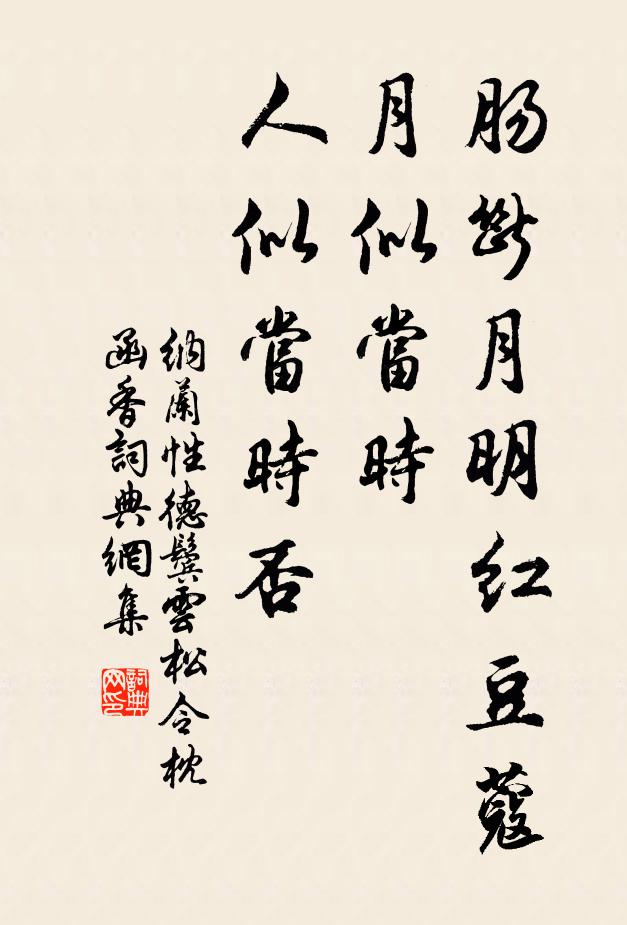 肠断月明红豆蔻
月似當時
人似當時否
纳蘭性德鬓雲松令枕
函香詞典網集
詞典網印